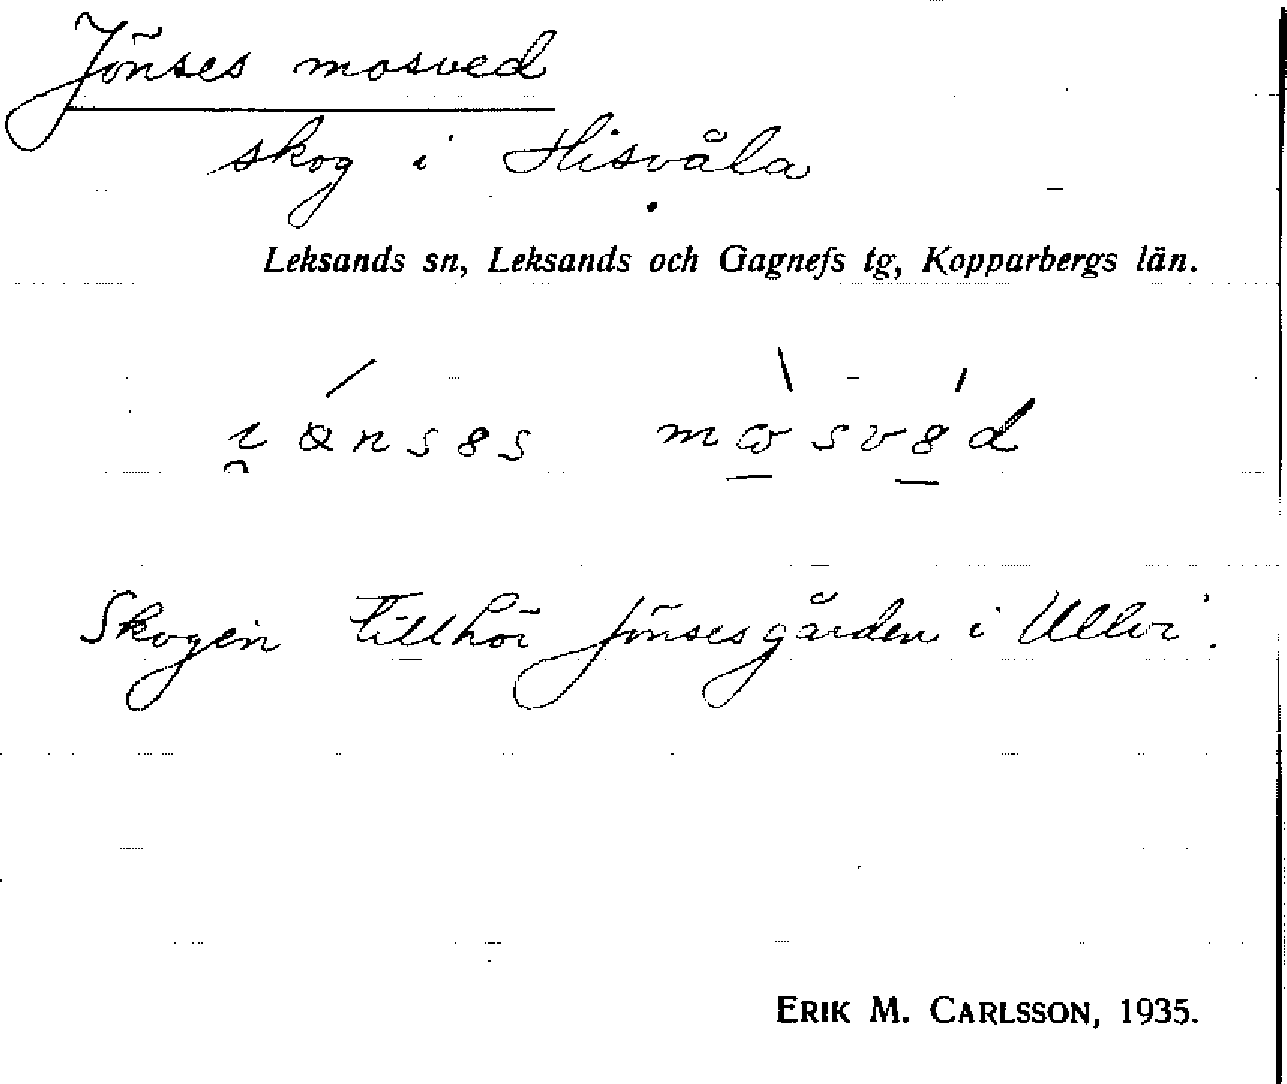 Jönses mosved
skog i Hisvåla
Leksands sn, Leksands och Gagnefs tg, Kopparbergs län.
Skogen tillhör Jönsesgården i Ullvi.
ERIK M. CARLSSON, 1935.